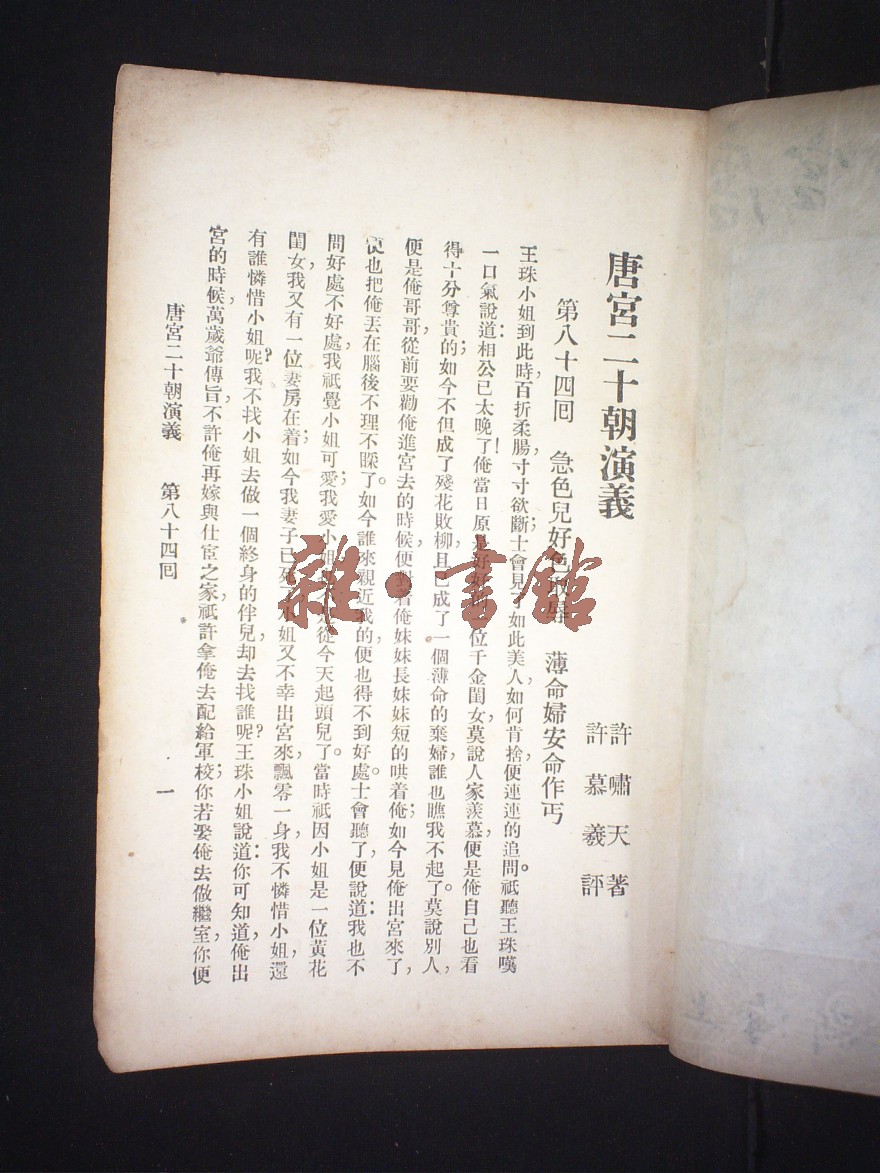 唐宮二十朝演義
許嘯天著
許慕羲評
第八十四回 急色兒好色 辱 薄命婦安命作丐
王珠小姐到此時,百折柔腸,寸寸欲斷;士會見了如此美人,如何肯捨,便連連的追問。祇聽王珠嘆
一口氣說道:相公已太晚了!俺當日原是好好的一位千金閨女,莫說人家羨慕,便是俺自己也看
得十分尊貴的;如今不但成了殘花敗柳,且已成了一個薄命的棄婦,誰也瞧我不起了。莫說別人,
便是俺哥哥,從前要勸俺進宮去的時候,便對着俺妹妹長妹妹短的哄着俺;如今見俺出宮來了,
便也把俺丟在腦後不理不睬了。如今誰來親近我的,便也得不到好處。士會聽了,便說道:我也不
問好處不好處,我祇覺小姐可愛;我愛小姐 從今天起頭兒了。當時祇因小姐是一位黃花
閨女,我又有一位妻房在着;如今我妻子已死了,小姐又不幸出宮來,飄零一身,我不憐惜小姐,還
有誰憐惜小姐呢?我不找小姐去做一個終身的伴兒,却去找誰呢?王珠小姐說道:你可知道俺出
宮的時候,萬歲爺傳旨,不許俺再嫁與仕宦之家,祇許拿俺去配給軍校;你若娶俺去做繼室,你便
唐宮二十朝演義 第八十四回
一
雜·書館